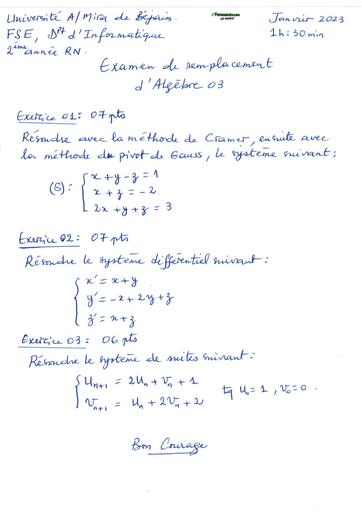 Université A/Mira de Béjaia.
Janvier 2023
FSE, Dpt d'Informatique
1h:30min
2ème année RN.
Examen de remplacement
d'Algèbre 03
Exercice 01: 07 pts
Résoudre avec la méthode de Cramer, ensuite avec
la méthode du pivot de Gauss, le système suivant:
(S): { x + y - z = 1
x + z = -2
2x + y + z = 3
Exercice 02: 07 pts
Résoudre le système différentiel suivant:
{ x' = x + y
y' = -x + 2y + z
z' = x + z
Exercice 03: 06 pts
Résoudre le système de suites suivant:
{ Un+1 = 2Un + Vn + 1
Vn+1 = Un + 2Vn + 2
tq U0 = 1, V0 = 0.
Bon Courage